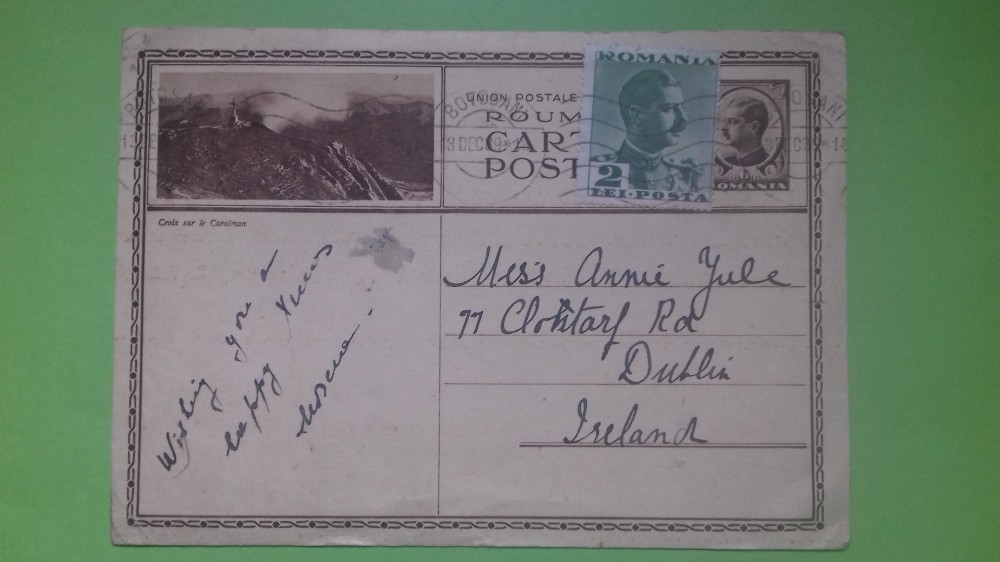 UNION POSTALE
ROUM
CART
POST
ROMANIA
2
LEI·POSTA
6
ROMANIA
BOTOSANI
13 DEC 39
Croix sur le Caraiman
Wishing you a
happy Xmas
Miss Annie Yule
77 Clontarf Rd
Dublin
Ireland